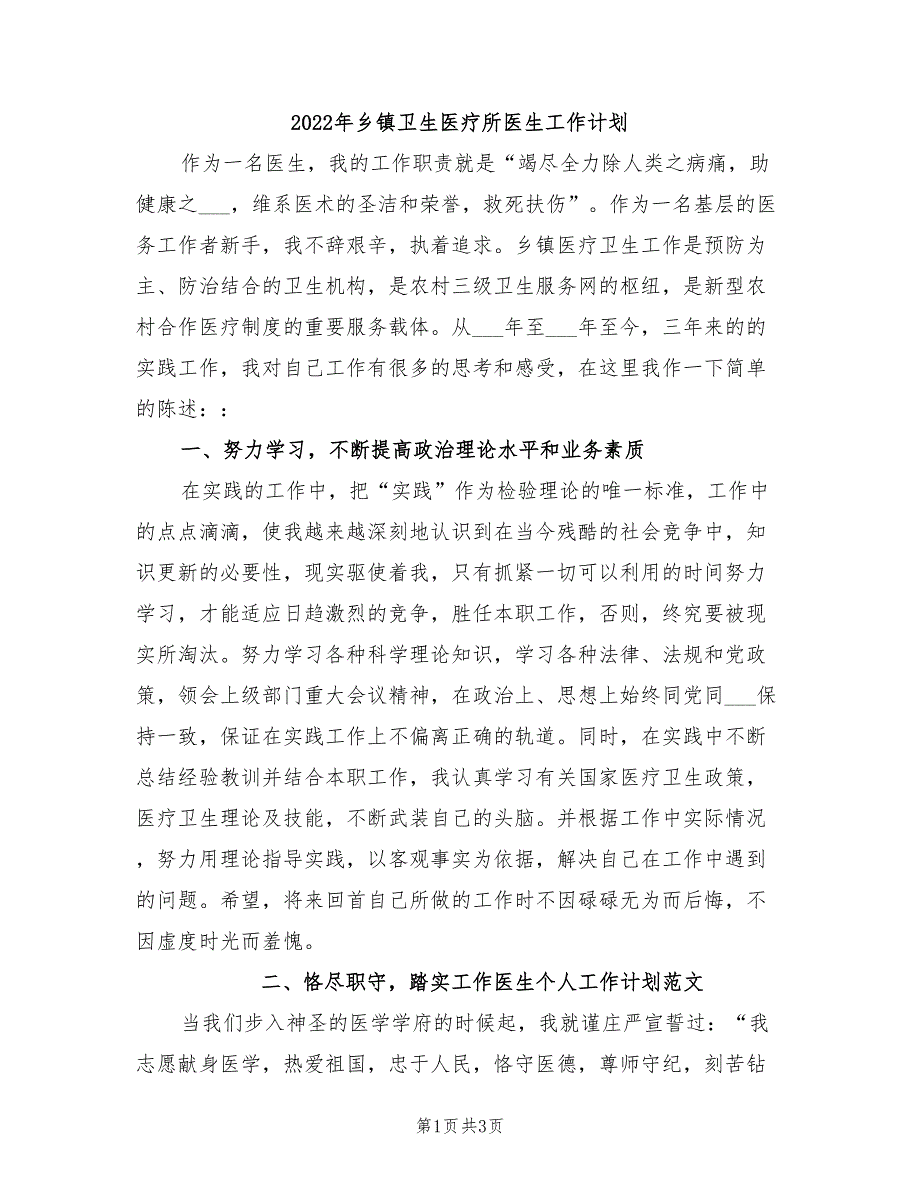 2022年乡镇卫生医疗所医生工作计划
作为一名医生，我的工作职责就是“竭尽全力除人类之病痛，助
健康之___，维系医术的圣洁和荣誉，救死扶伤”。作为一名基层的医
务工作者新手，我不辞艰辛，执着追求。乡镇医疗卫生工作是预防为
主、防治结合的卫生机构，是农村三级卫生服务网的枢纽，是新型农
村合作医疗制度的重要服务载体。从___年至___年至今，三年来的的
实践工作，我对自己工作有很多的思考和感受，在这里我作一下简单
的陈述：：
一、努力学习，不断提高政治理论水平和业务素质
在实践的工作中，把“实践”作为检验理论的唯一标准，工作中
的点点滴滴，使我越来越深刻地认识到在当今残酷的社会竞争中，知
识更新的必要性，现实驱使着我，只有抓紧一切可以利用的时间努力
学习，才能适应日趋激烈的竞争，胜任本职工作，否则，终究要被现
实所淘汰。努力学习各种科学理论知识，学习各种法律、法规和党政
策，领会上级部门重大会议精神，在政治上、思想上始终同党同___保
持一致，保证在实践工作上不偏离正确的轨道。同时，在实践中不断
总结经验教训并结合本职工作，我认真学习有关国家医疗卫生政策，
医疗卫生理论及技能，不断武装自己的头脑。并根据工作中实际情况
，努力用理论指导实践，以客观事实为依据，解决自己在工作中遇到
的问题。希望，将来回首自己所做的工作时不因碌碌无为而后悔，不
因虚度时光而羞愧。
二、恪尽职守，踏实工作医生个人工作计划范文
当我们步入神圣的医学学府的时候起，我就谨庄严宣誓过：“我
志愿献身医学，热爱祖国，忠于人民，恪守医德，尊师守纪，刻苦钻
第1页共3页